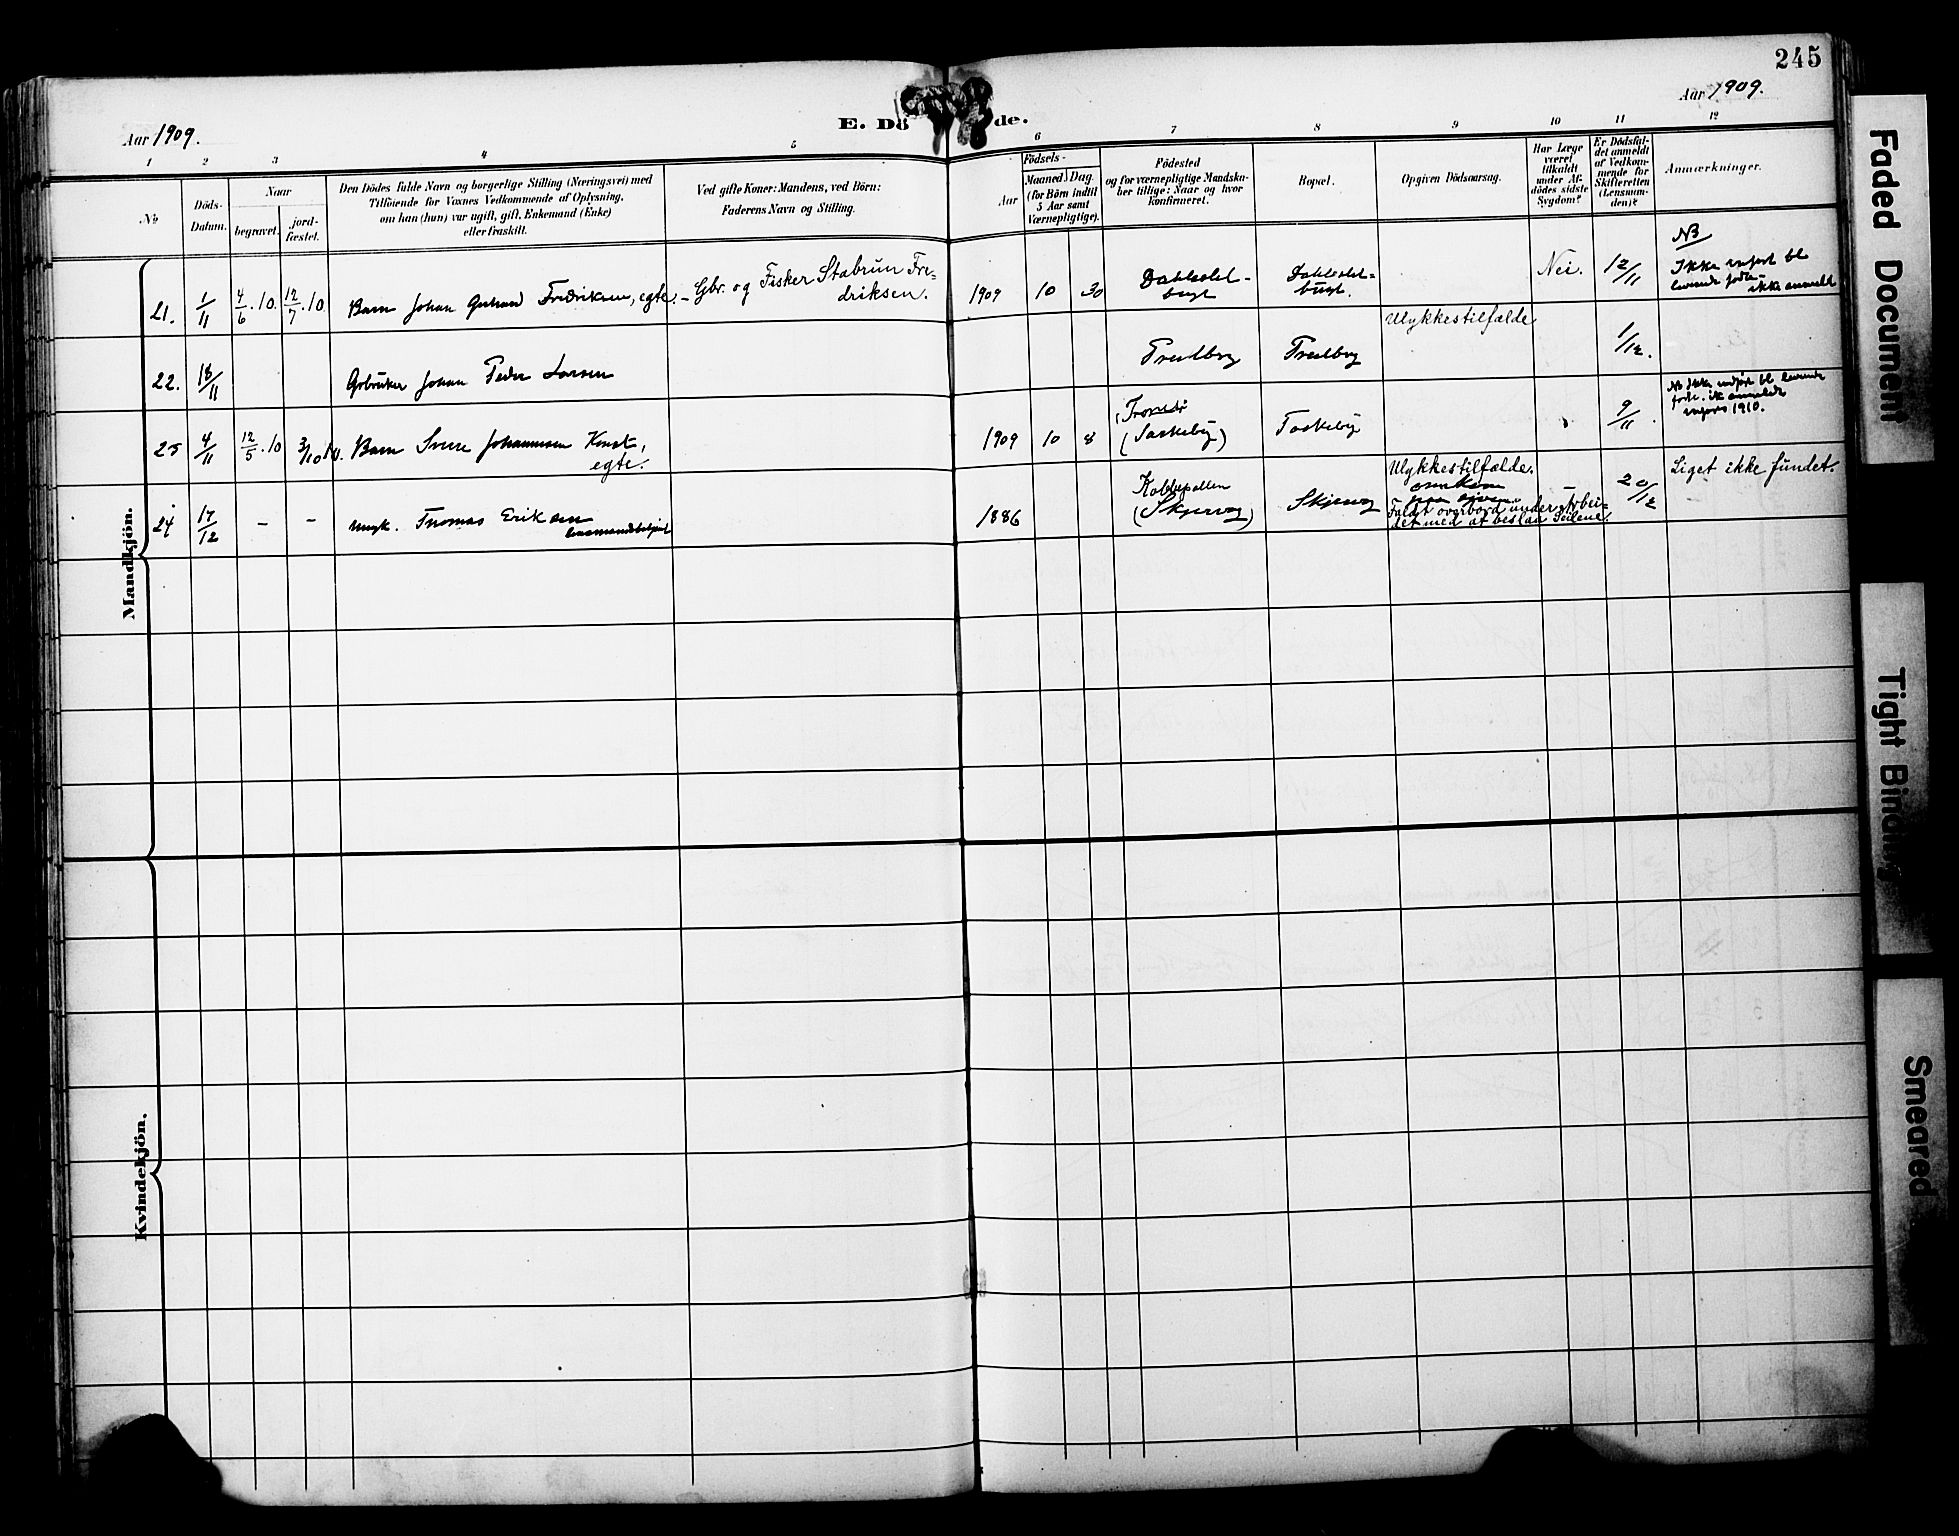 245
Aar 1909.
E. Dö de.
Aar 1909.
1 2 3 4 5 6 7 8 9 10 11 12
No
Döds-
Datum.
Naar
begravet.
jord-
fæstet.
Den Dödes fulde Navn og borgerlige Stilling (Næringsvei) med
Tilföiende for Voxnes Vedkommende af Oplysning,
om han (hun) var ugift, gift, Enkemand (Enke)
eller fraskilt.
Ved gifte Koner: Mandens, ved Börn:
Faderens Navn og Stilling.
Födsels-
Aar
Maaned. Dag.
(for Börn indtil
5 Aar samt
Værnepligtige).
Födested
og for værnepligtige Mandska-
ber tillige: Naar og hvor
konfirmeret.
Bopæl.
Opgiven Dödsaarsag.
Har Læge
været
tilkaldt
under Af-
dödes sidste
Sygdom?
Er Dödsfal-
det anmeldt
af Vedkom-
mende for
Skifteretten
(Lensman-
den)?
Anmærkninger.
Mandkjön.
21. 1/11 4/6.10 12/7.10 Barn Johan Fredriksen, egte.
Gbr. og Fisker Stabrun Fre-
driksen.
1909 10 30
Nei. 12/11
NB
Ikke
levende fødte -
ikke anmeldt
22. 18/11 Gbruker Johan Peder Larsen
Ulykkestilfælde
1/12.
23 4/11 12/5.10 3/10 10. Barn Sverre Johannesen
egte.
1909 10 8
9/11
1910.
24 17/12 - - Ungk. Thomas Eriksen
1886
(Skjervøy)
Skjervøy
Ulykkestilfælde.
Faldt overbord under Arbei-
det med at beslaa Seilene.
20/12
Liget ikke fundet.
Kvindekjön.
Faded Document
Tight Binding
Smeared